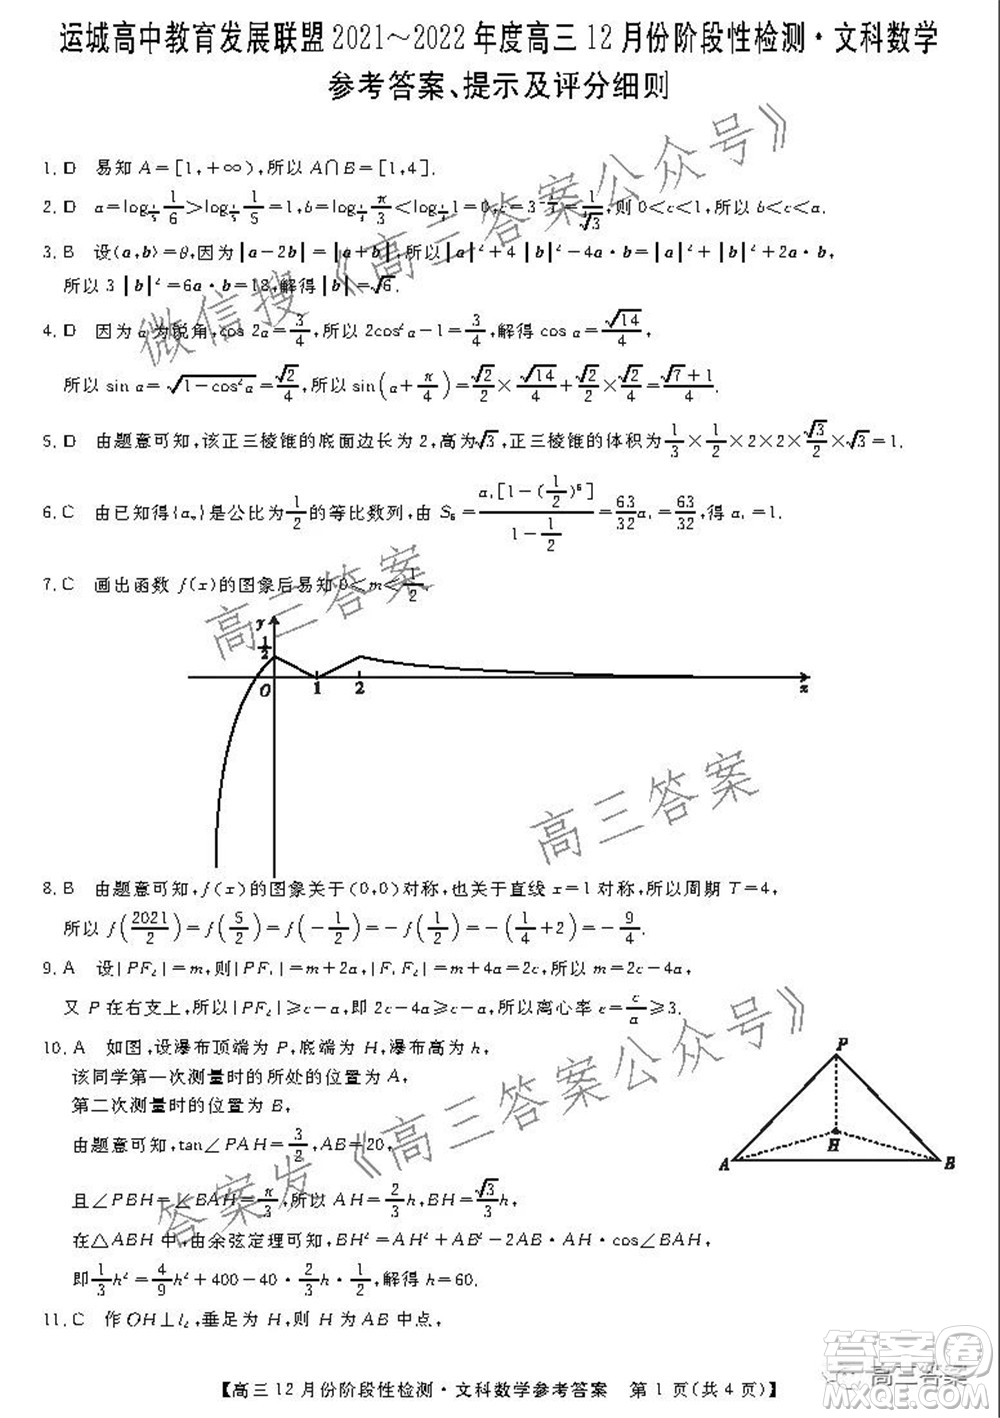 运城高中教育发展联盟 2021～2022 年度高三 12 月份阶段性检测·文科数学
参考答案、提示及评分细则
1. D 易知 A=[1,+∞),所以 A∩B=[1,4].
2. D
则 0<c<1,所以 b<c<a.
3. B 设⟨a,b⟩=θ,因为|a-2b|=|a+b|,所以|a|²+4|b|²-4a·b=|a|²+|b|²+2a·b,
所以 3|b|²=6a·b=18,解得|b|=√6.
4. D 因为 α 为锐角,cos 2α=3/4,所以 2cos²α-1=3/4,解得 cos α=√14/4,
所以 sin α=√(1-cos²α)=√2/4,所以 sin(α+π/4)=√2/4×√14/4+√2/2×√2/4=(√7+1)/4.
5. D 由题意可知,该正三棱锥的底面边长为 2,高为√3,正三棱锥的体积为 1/3×1/2×2×2×√3/2×√3=1.
6. C 由已知得{aₙ}是公比为 1/2 的等比数列,由 S₆=a₁[1-(1/2)⁶]/(1-1/2)=63/32 a₁=63/32,得 a₁=1.
7. C 画出函数 f(x)的图象后易知 0<m<1/2.
y
1/2
O 1 2 x
8. B 由题意可知,f(x)的图象关于(0,0)对称,也关于直线 x=1 对称,所以周期 T=4,
所以 f(2021/2)=f(5/2)=f(-1/2)=-f(1/2)=-(1/4+2)=-9/4.
9. A 设|PF₂|=m,则|PF₁|=m+2a,|F₁F₂|=m+4a=2c,所以 m=2c-4a,
又 P 在右支上,所以|PF₂|≥c-a,即 2c-4a≥c-a,所以离心率 e=c/a≥3.
10. A 如图,设瀑布顶端为 P,底端为 H,瀑布高为 h,
该同学第一次测量时的所处的位置为 A,
第二次测量时的位置为 B,
由题意可知,tan∠PAH=3/2,AB=20,
且∠PBH=∠BAH=π/3,所以 AH=2/3 h,BH=√3/3 h,
在△ABH 中,由余弦定理可知,BH²=AH²+AB²-2AB·AH·cos∠BAH,
即 1/3 h²=4/9 h²+400-40·2/3 h·1/2,解得 h=60.
P
H
A B
11. C 作 OH⊥l₂,垂足为 H,则 H 为 AB 中点,
【高三 12 月份阶段性检测·文科数学参考答案 第 1 页(共 4 页)】
微信搜《高三答案公众号》
高三答案
高三答案
答案发《高三答案公众号》
高三答案
答案圈
MXQE.COM